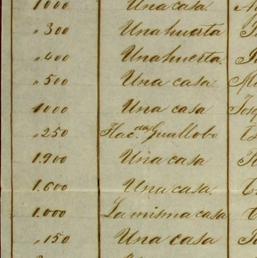 1000 Una casa
,300 Una huerta
,400 Una huerta
,500 Una casa
1000 Una casa
,250 Hac.
1.900 Una casa
1.600 Una casa
1.000 La misma casa
,150 Una casa